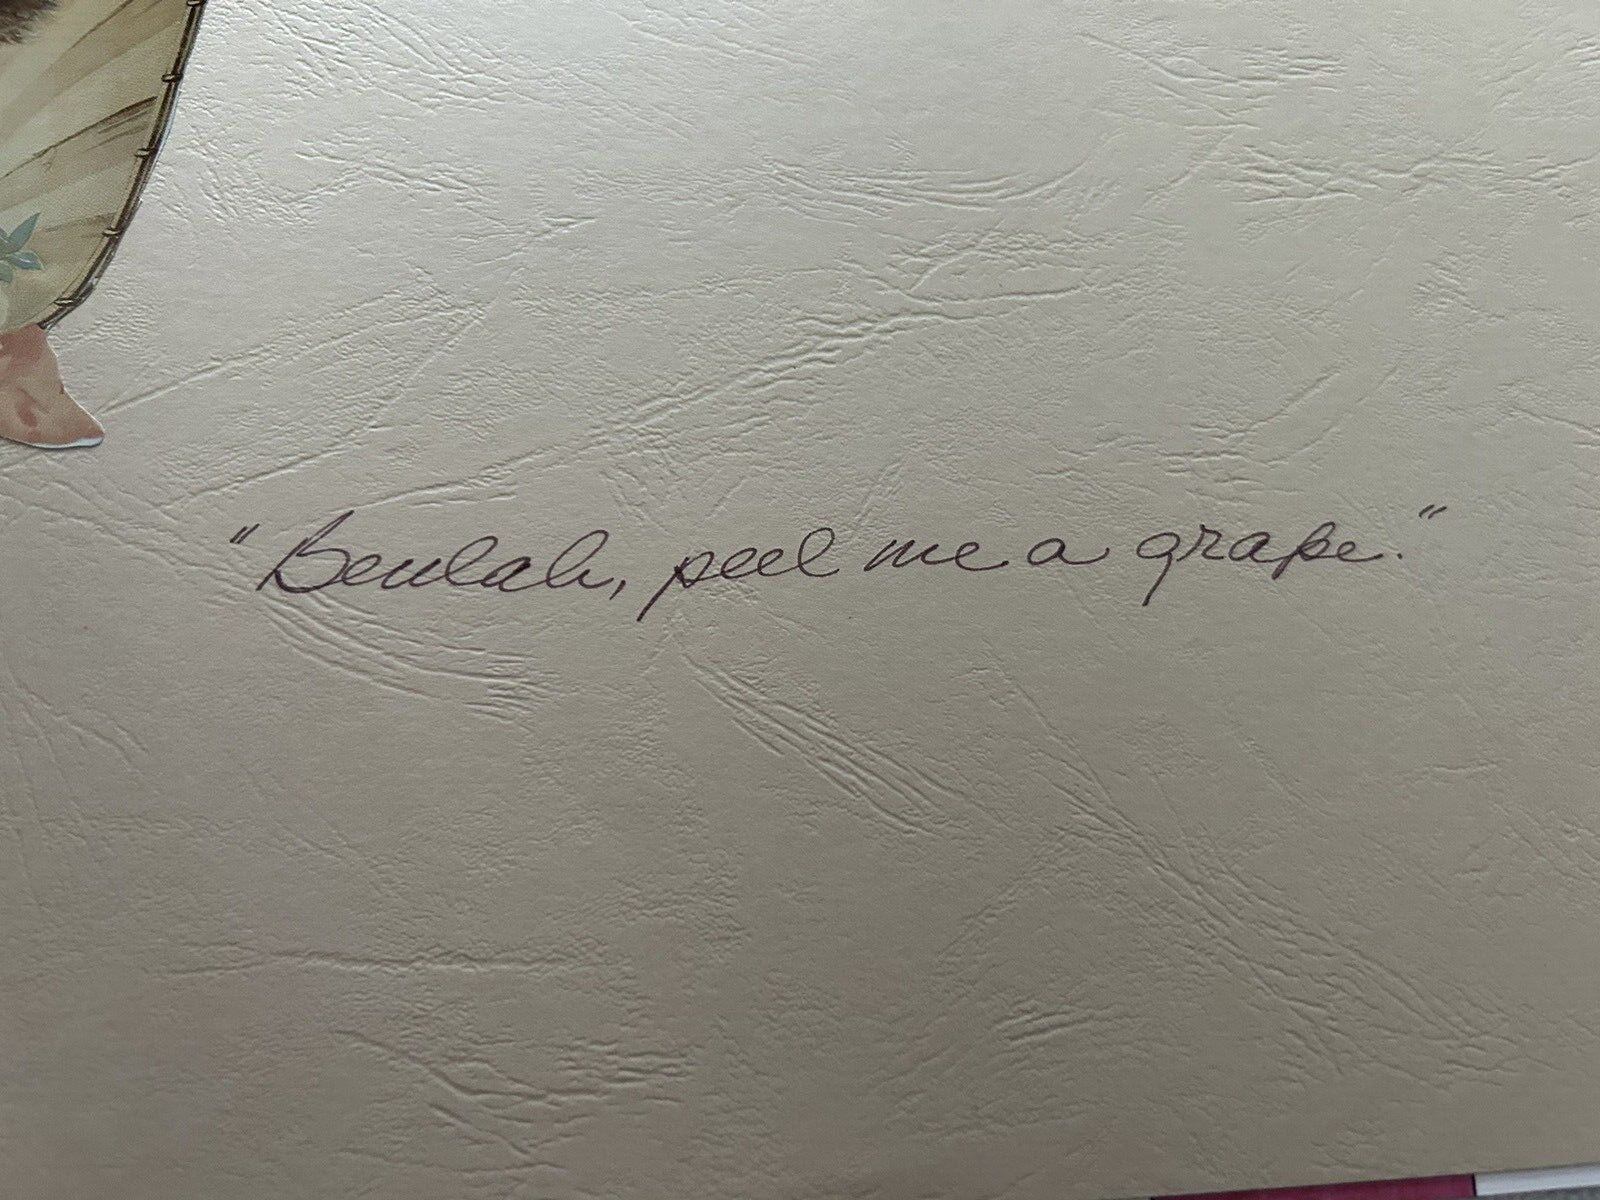 "Beulah, peel me a grape."